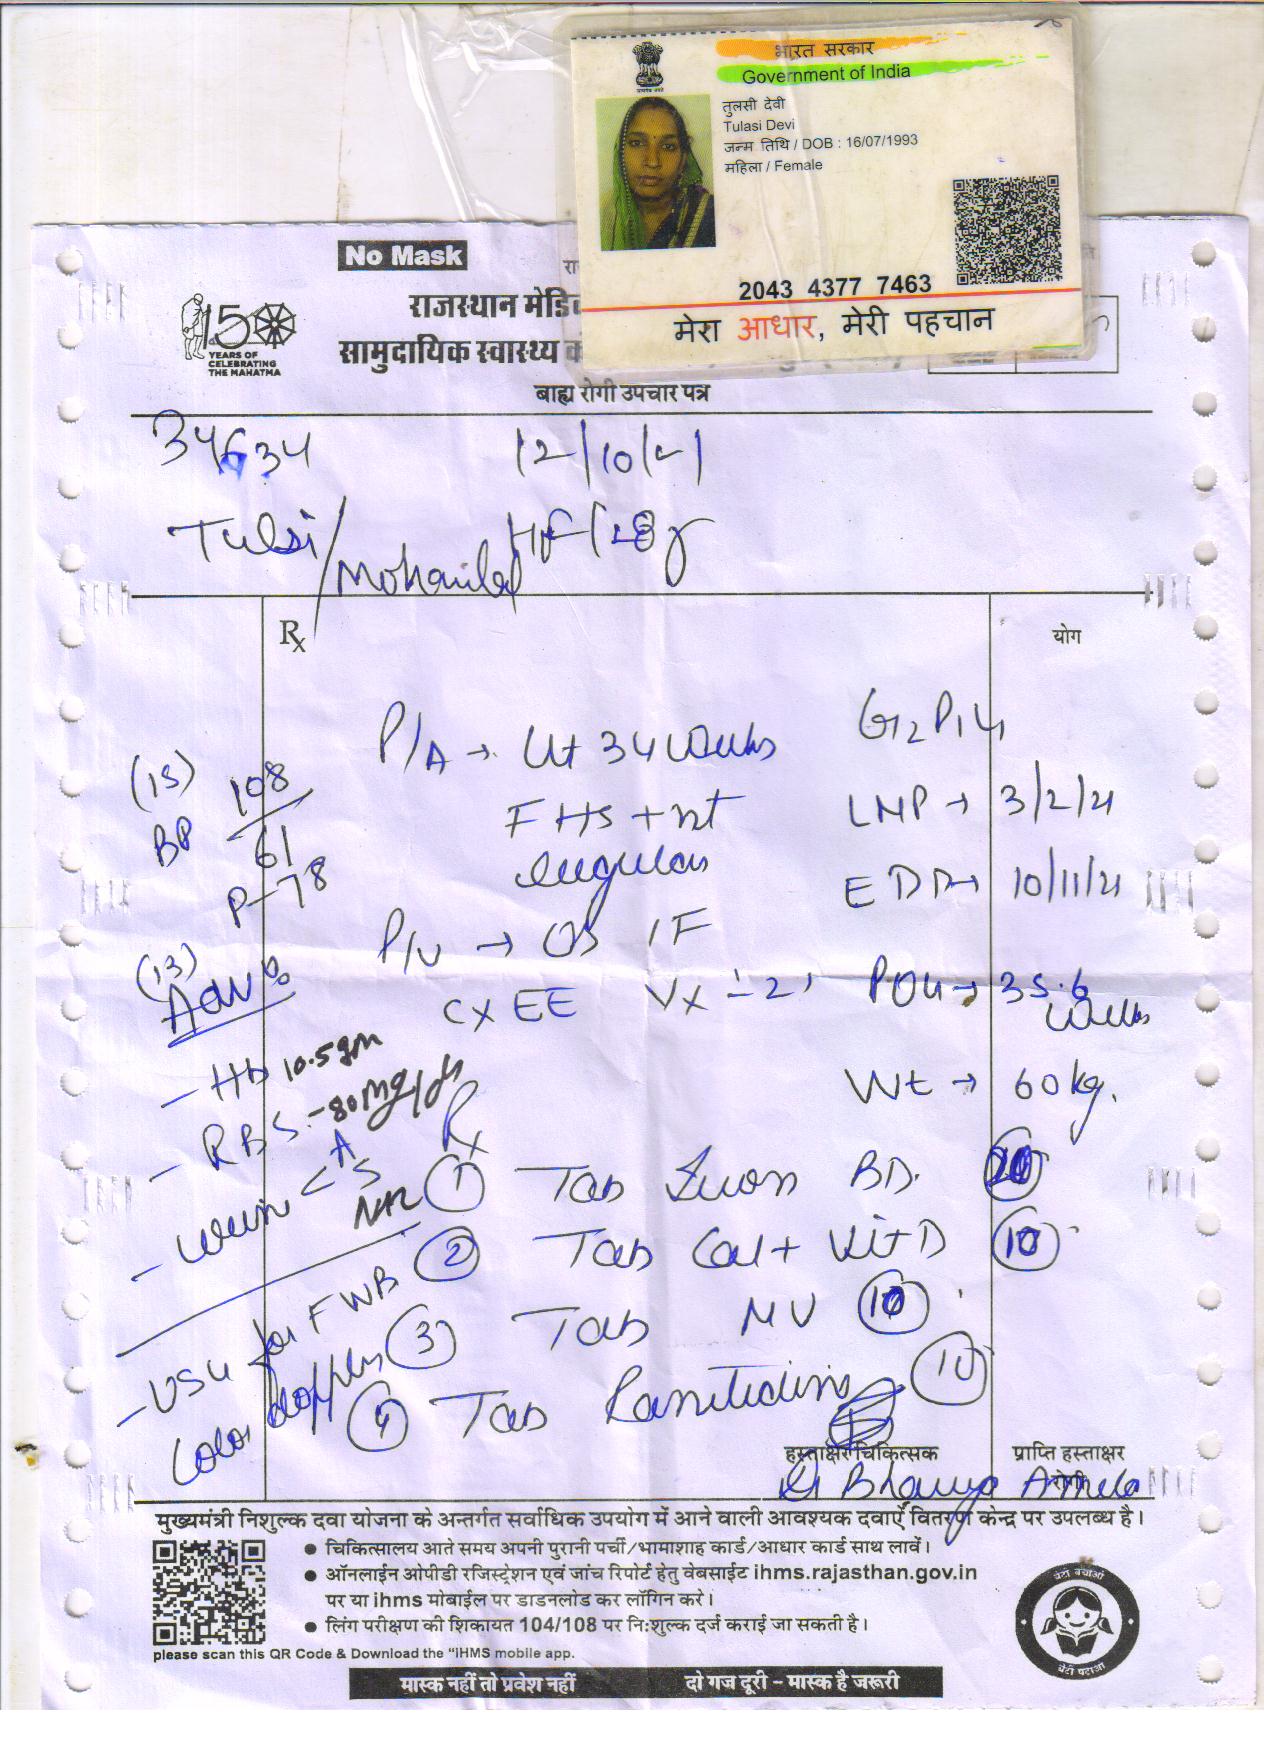 भारत सरकार
Government of India
तुलसी देवी
Tulasi Devi
जन्म तिथि / DOB : 16/07/1993
महिला / Female
2043 4377 7463
मेरा आधार, मेरी पहचान
No Mask
रा
राजस्थान मेडि
150
YEARS OF
CELEBRATING
THE MAHATMA
सामुदायिक स्वास्थ्य
बाह्य रोगी उपचार पत्र
34634 12/10/21
Tulsi/Mohanlal HF/28y
Rx
योग
P/A → Ut 34 weeks
FHS + nt
regular
P/V → Os 1F
CX EE Vx -2
G2P1L1
LMP → 3/2/21
EDD → 10/11/21
POG → 35.6 weeks
Wt → 60 kg.
(15)
BP 108/61
P-78
(13)
Adv:
- Hb 10.5gm
- RBS - 80mg/dl
- Urine A S Nil
- USG for FWB
Color doppler
Rx
1 Tab BD.
2 Tab Cal + Vit D 10
3 Tab MV 10
4 Tab Ranitidine 10
हस्ताक्षर चिकित्सक
प्राप्ति हस्ताक्षर
रोगी
मुख्यमंत्री निशुल्क दवा योजना के अन्तर्गत सर्वाधिक उपयोग में आने वाली आवश्यक दवाऐं वितरण केन्द्र पर उपलब्ध है।
● चिकित्सालय आते समय अपनी पुरानी पर्ची/भामाशाह कार्ड/आधार कार्ड साथ लावें।
● ऑनलाईन ओपीडी रजिस्ट्रेशन एवं जांच रिपोर्ट हेतु वेबसाईट ihms.rajasthan.gov.in
पर या ihms मोबाईल पर डाडनलोड कर लॉगिन करे।
● लिंग परीक्षण की शिकायत 104/108 पर नि:शुल्क दर्ज कराई जा सकती है।
please scan this QR Code & Download the "IHMS mobile app.
बेटी बचाओ
बेटी पढाओ
मास्क नहीं तो प्रवेश नहीं दो गज दूरी – मास्क है जरूरी